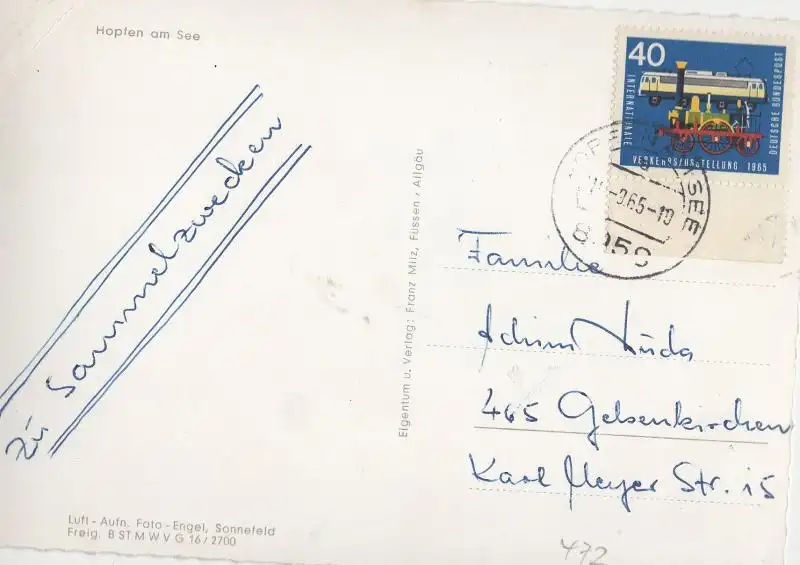 Hopfen am See
zu Sammelzwecken
Eigentum u. Verlag: Franz Milz, Füssen, Allgäu
Luft-Aufn. Foto-Engel, Sonnefeld
Freig. B ST M W V G 16/2700
40
INTERNATIONALE
VERKEHRSAUSSTELLUNG 1965
DEUTSCHE BUNDESPOST
SEE
.65-10
8959
Familie
Achim
465 Gelsenkirchen
Karl Meyer Str. 15
472